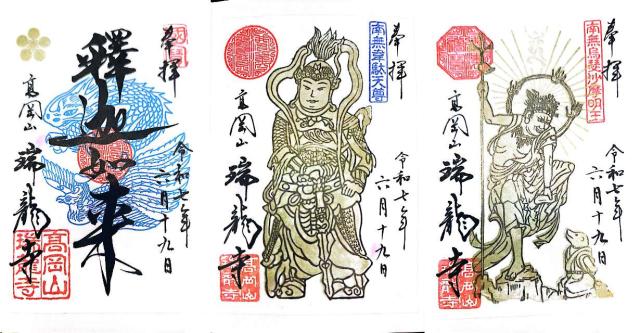 奉拝
釋迦如来
令和七年
六月十九日
高岡山
瑞龍寺
高岡山
瑞龍寺
奉拝
南無韋駄天尊
令和七年
六月十九日
高岡山
瑞龍寺
高岡山
瑞龍寺
奉拝
南無烏瑟沙摩明王
令和七年
六月十九日
高岡山
瑞龍寺
高岡山
瑞龍寺